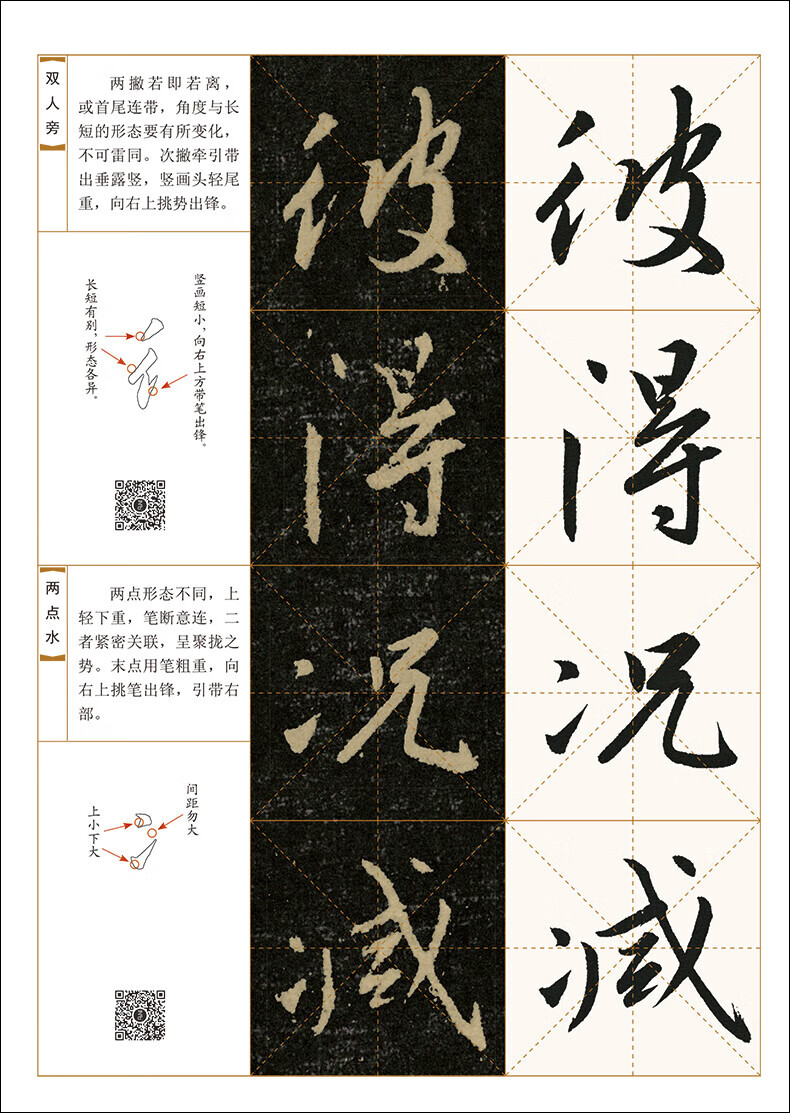 双人旁
两撇若即若离，
或首尾连带，角度与长
短的形态要有所变化，
不可雷同。次撇牵引带
出垂露竖，竖画头轻尾
重，向右上挑势出锋。
长短有别，形态各异。
竖画短小，向右上方带笔出锋。
彼
彼
得
得
两点水
两点形态不同，上
轻下重，笔断意连，二
者紧密关联，呈聚拢之
势。末点用笔粗重，向
右上挑笔出锋，引带右
部。
上小下大
间距勿大
况
况
减
减